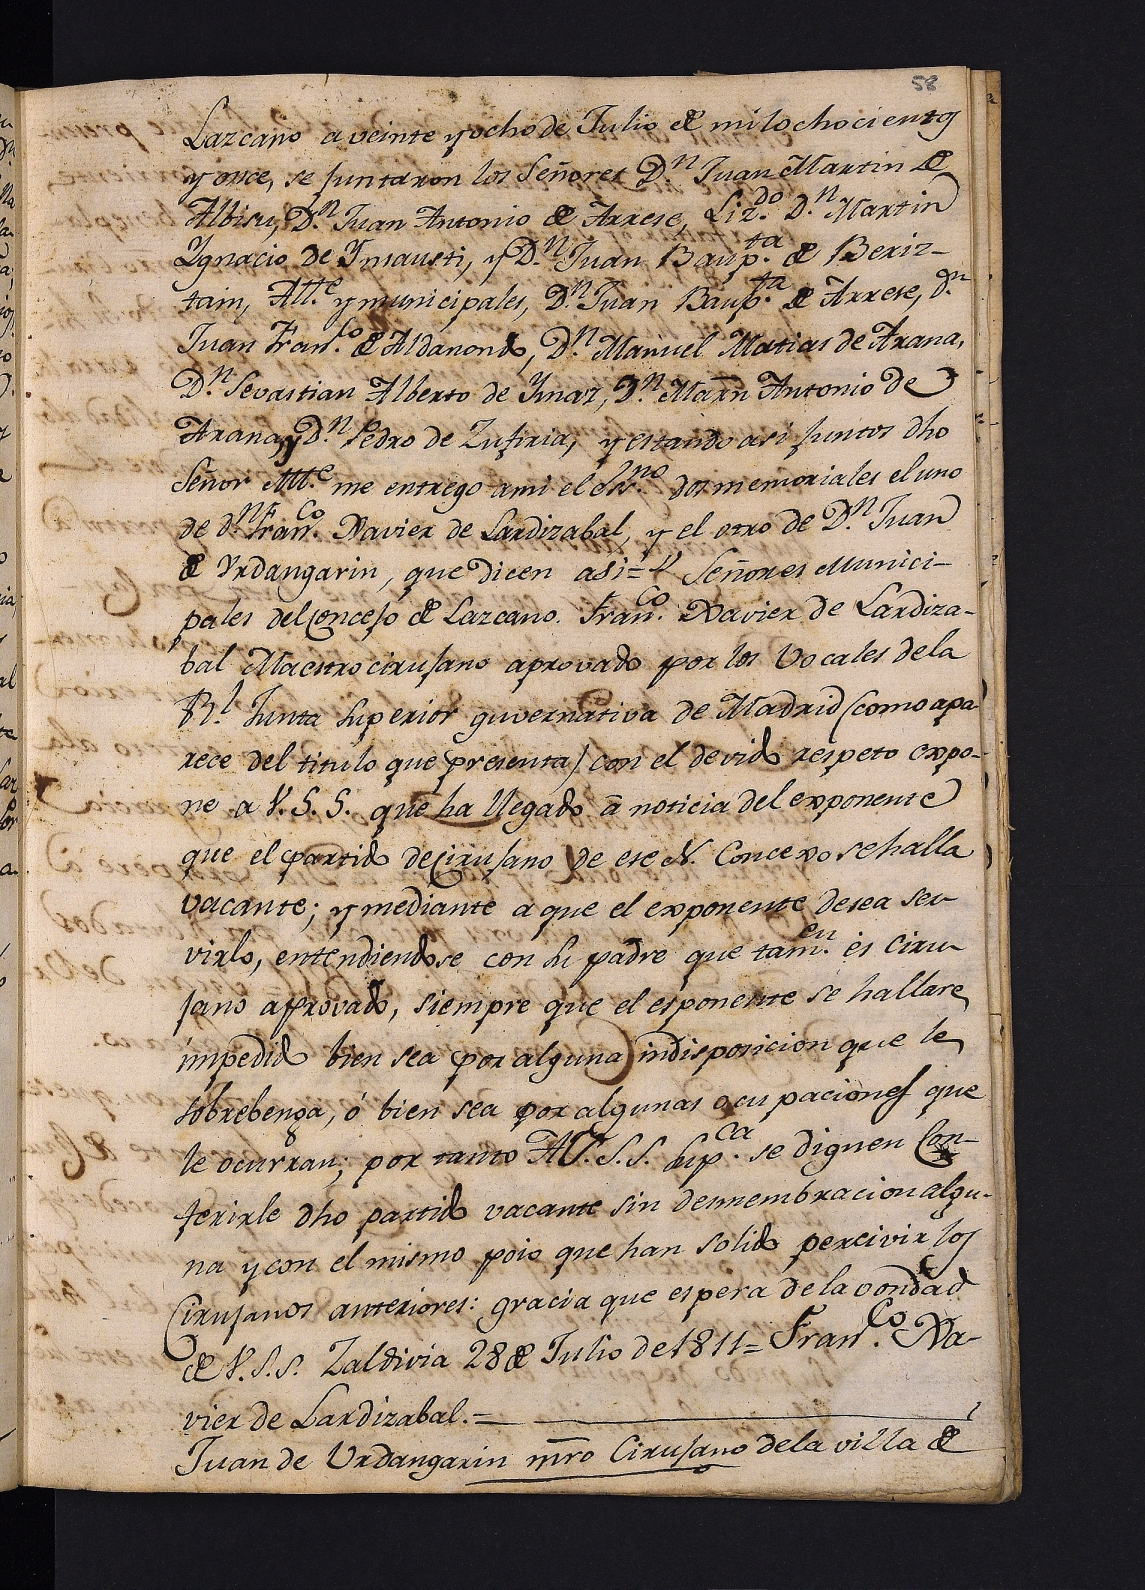 58
Lazcano a veinte y ocho de Julio de mil ochocientos
y once, se juntaron los Señores Dn. Juan Martin de
Albisu, Dn. Juan Antonio de Arrese, Lizdo. Dn. Martin
Ygnacio de Ynsausti, y Dn. Juan Baupta. de Beriz-
tain, Alle. y municipales, Dn. Juan Baupta. de Arrese, dn.
Juan Franco. de Aldanondo, Dn. Manuel Matias de Arana,
Dn. Sevastian Alberto de Ymaz, Dn. Marñ Antonio de
Arana, y Dn. Pedro de Zufiria, y estando asi juntos dho
Señor Alle. me entrego a mi el Esno. dos memoriales el uno
de dn. Franco. Xavier de Lardizabal, y el otro de Dn. Juan
de Urdangarin, que dicen asi= Señores Munici-
pales del Concejo de Lazcano. Franco. Xavier de Lardiza-
bal Maestro cirujano aprovado por los Vocales de la
Rl. Junta Superior guvernativa de Madrid (como apa
rece del titulo que presenta) con el devido respeto expo-
ne a V.S.S. que ha llegado â noticia del exponente
que el partido de Cirujano de ese N. Concexo se halla
vacante; y mediante a que el exponente desea ser
virlo, entendiendose con su padre que tamen. es ciru-
jano aprovado, siempre que el esponente se hallare
impedido bien sea por alguna indisposicion que le
sobrebenga, ó bien sea por algunas ocupaciones que
le ocurran; por tanto A V.S.S. supca. se dignen Con-
ferirle dho partido vacante sin desmembracion algu-
na y con el mismo poio que han solido percivir los
Cirujanos anteriores: gracia que espera de la vondad
de V.S.S. Zaldivia 28 de Julio de 1811= Franco. Xa-
vier de Lardizabal.=
Juan de Urdangarin mro Cirujano de la villa de